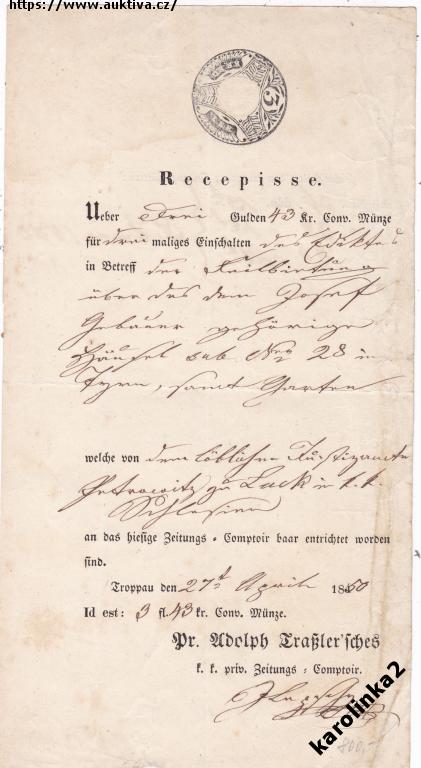 https://www.auktiva.cz/
3
Recepisse.
Ueber Drei Gulden 43 Kr. Conv. Münze
für drei maliges Einschalten des Ediktes
in Betreff der Feilbietung
über des dem Josef
Gebauer gehörige
Häusel sub Nro 28 in
Tyrn, samt Garten
welche von dem löblichen Justizamte
Petrowitz zu Lack in k. k.
Schlesien
an das hiesige Zeitungs-Comptoir baar entrichtet worden
sind.
Troppau den 27t April 1850
Id est: 3 fl. 43 kr. Conv. Münze.
Pr. Adolph Traßler'sches
k. k. priv. Zeitungs-Comptoir.
karolinka2
800,-